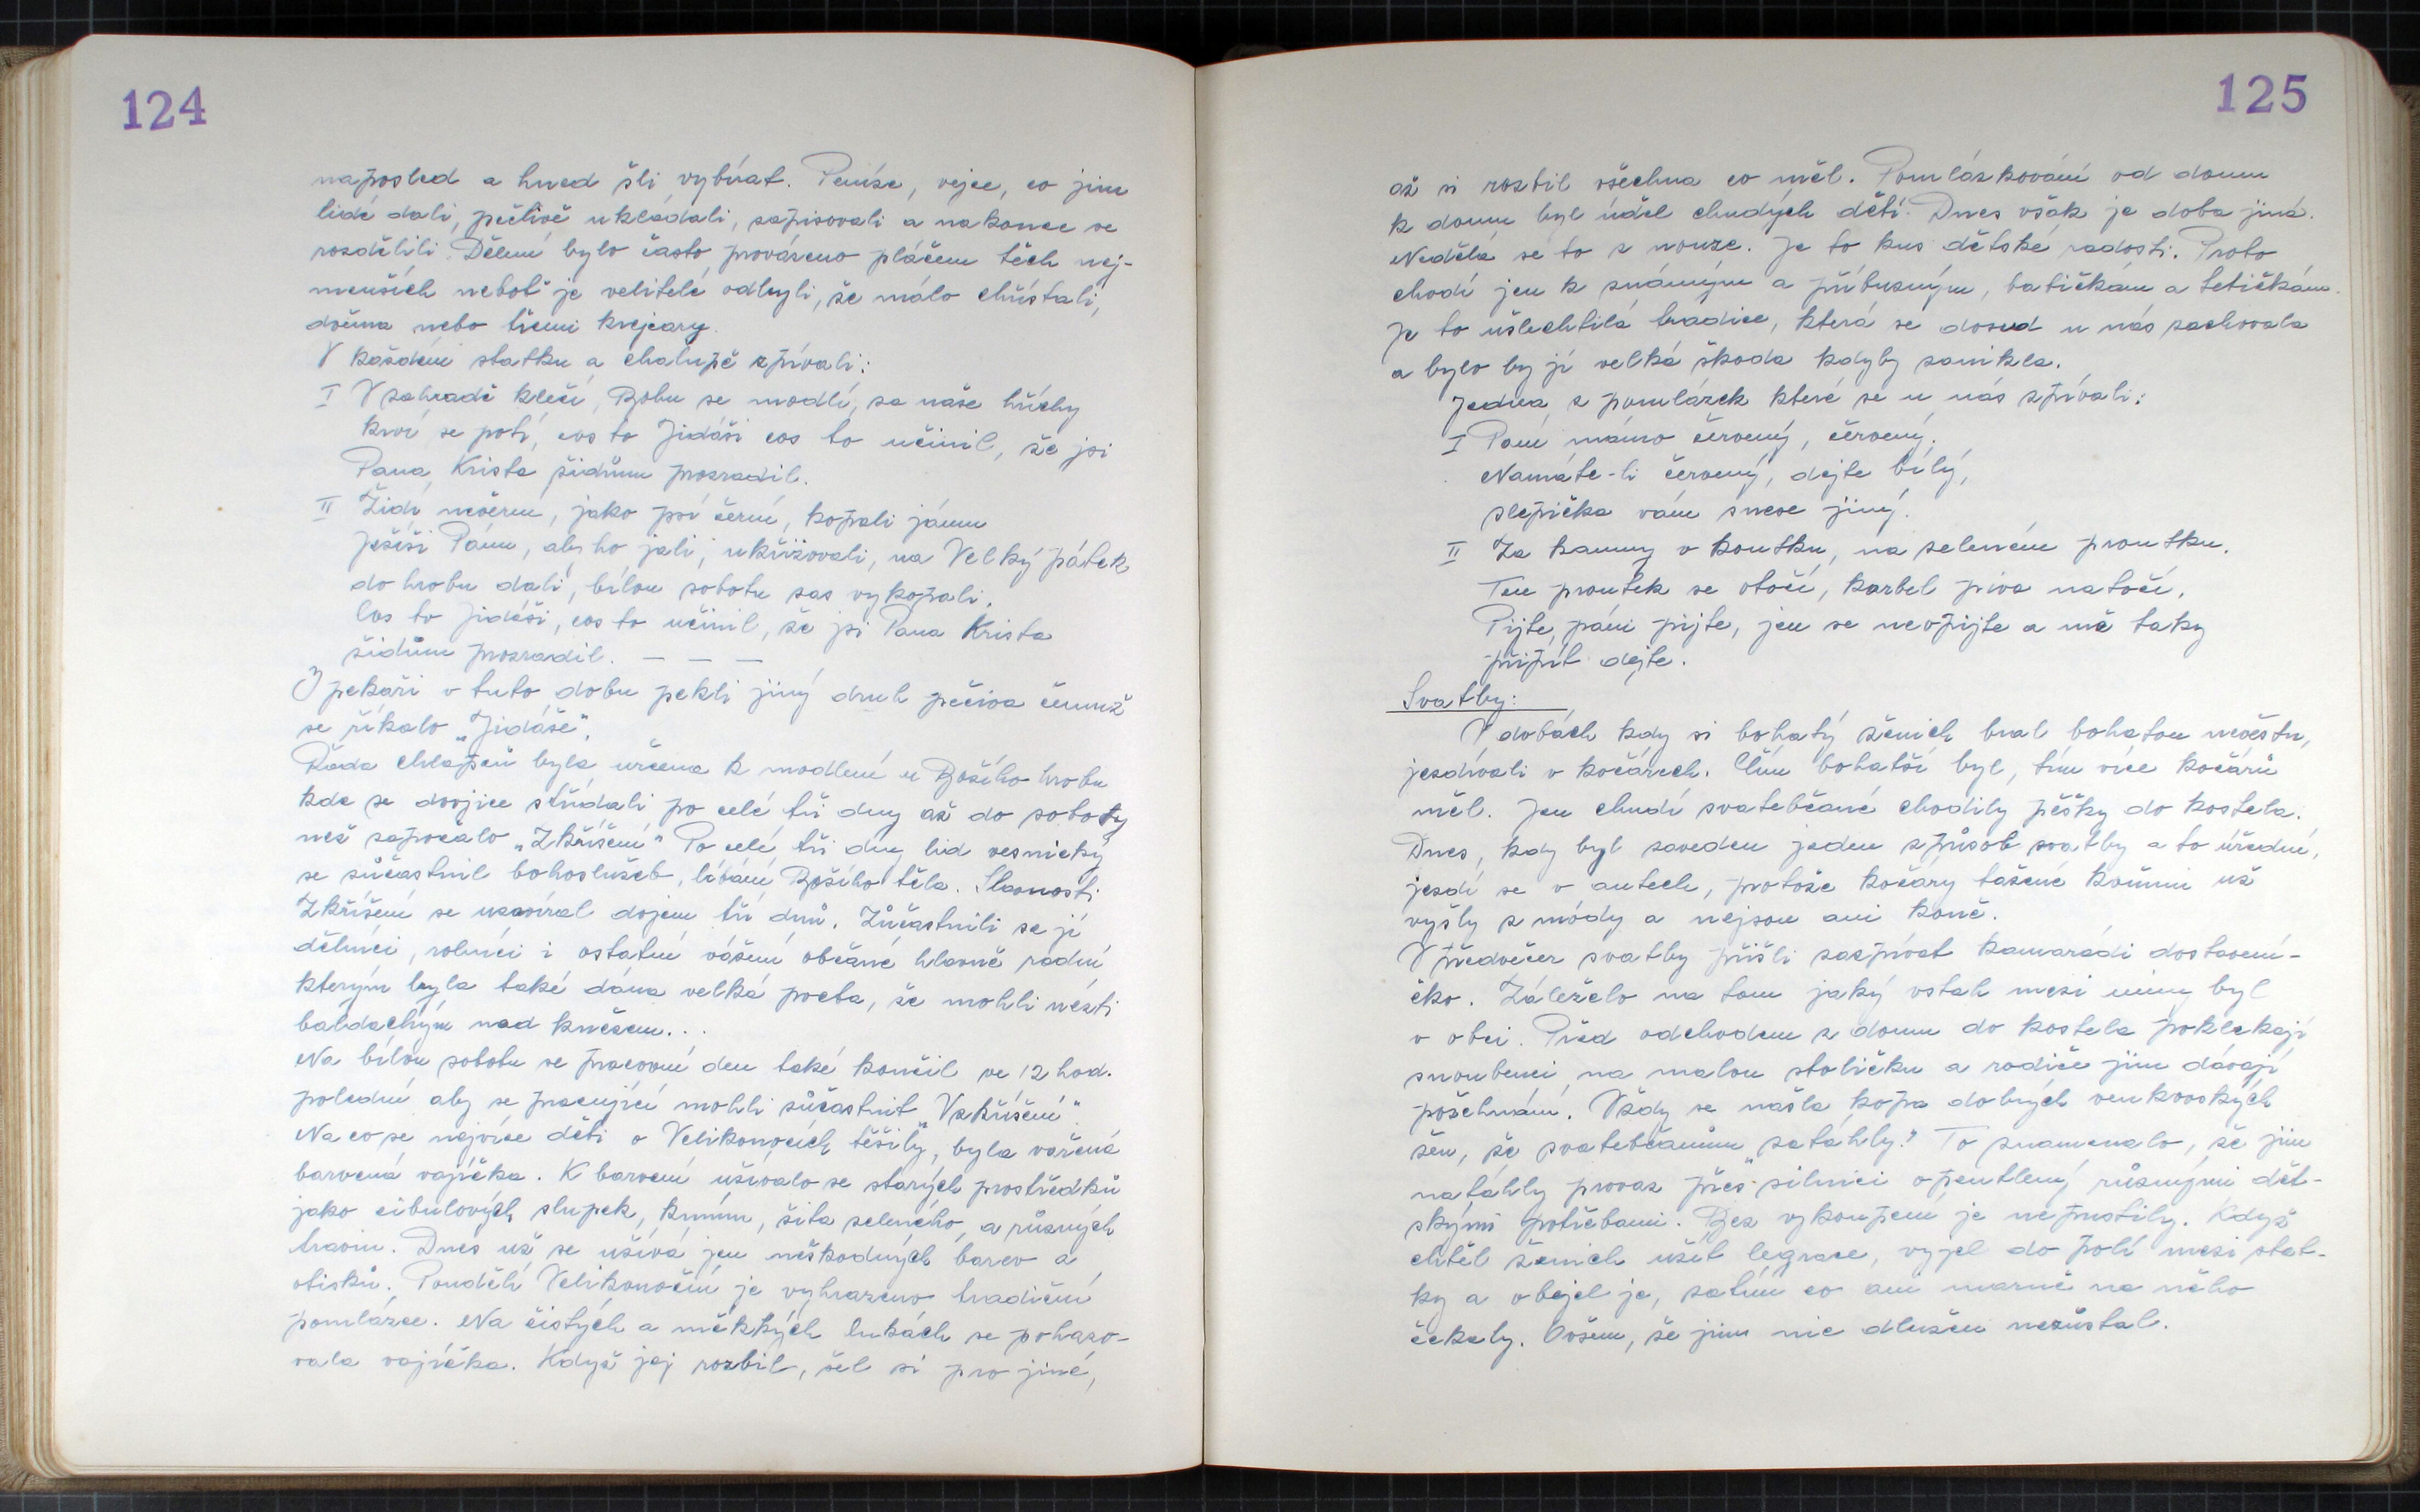 124
naposled a hned šli vybírat. Peníze, vejce, co jim
lidé dali, pečlivě ukládali, zapisovali a nakonec se
rozdělili. Dělení bylo často prováženo pláčem těch nej-
menších neboť je velitelé odbyli, že málo chřístali,
dvěma nebo třemi krejcary.
V každém statku a chalupě zpívali:
I V zahradě klečí, Bohu se modlí, za naše hříchy
krví se potí, cos to Jidáši cos to učinil, že jsi
Pana Krista židům prozradil.
II Židi nevěrní, jako psi černí, kopali jámu
Ježíši Pánu, aby ho jali, ukřižovali, na Velký pátek
do hrobu dali, bílou sobotu zas vykopali.
Cos to Jidáši, cos to učinil, že jsi Pana Krista
židům prozradil. — — —
I pekaři v tuto dobu pekli jiný druh pečiva čemuž
se říkalo „Jidáše".
Řada chlapců byla určena k modlení u Božího hrobu
kde se dvojice střídali po celé tři dny až do soboty
než započalo „Zkříšení" Po celé tři dny lid vesnický
se zúčastnil bohoslužeb, líbání Božího těla. Slavnosti
Zkříšení se uzavíral dojem tří dnů. Zůčastnili se jí
dělníci, rolníci i ostatní vážení občané hlavně radní
kterým byla také dána velká pocta, že mohli nésti
baldachým nad knězem...
Na bílou sobotu se pracovní den také končil ve 12 hod.
polední aby se pracující mohli zůčastnit „Vzkříšení".
Na co se nejvíce děti o Velikonocích těšily, byla vařená
barvená vajíčka. K barvení užívalo se starých prostředků
jako cibulových slupek, kmínu, žita zeleného a různých
travin. Dnes už se užívá jen neškodných barev a
otisků. Pondělí Velikonoční je vyhrazeno tradiční
pomlázce. Na čistých a měkkých lukách se pohazo-
vala vajíčka. Když jej rozbil, šel si pro jiné,
125
až si rozbil všechna co měl. Pomlázkování od domu
k domu byl úděl chudých dětí. Dnes však je doba jiná.
Nedělá se to z nouze. Je to kus dětské radosti. Proto
chodí jen k známým a příbuzným, batičkám a tetičkám.
Je to ušlechtilá tradice, která se dosud u nás zachovala
a bylo by jí velká škoda kdyby zanikla.
Jedna z pomlázek které se u nás zpívali:
I Paní mámo červený, červený.
Namáte-li červený, dejte bílý,
slepička vám snese jiný.
II Za kamny v koutku, na zeleném proutku.
Ten proutek se otočí, korbel piva natočí.
Pijte, páni pijte, jen se neopijte a mě taky
připít dejte.
Svatby:
V dobách kdy si bohatý ženich bral bohatou nevěstu,
jezdívali v kočárech. Čím bohatší byl, tím více kočárů
měl. Jen chudí svatebčané chodily pěšky do kostela.
Dnes, kdy byl zaveden jeden způsob svatby a to úřední,
jezdí se v autech, protože kočáry tažené koňmi už
vyšly z módy a nejsou ani koně.
V předvečer svatby přišli zazpívat kamarádi dostavení-
čko. Záleželo na tom jaký vztah mezi nimy byl
v obci. Před odchodem z domu do kostela poklekají
snoubenci na malou stoličku a rodiče jim dávají
požehnání. Vždy se našla kopa dobrých venkovských
žen, že svatebčanům „zatáhly." To znamenalo, že jim
natáhly provaz přes silnici opentlený různými dět-
skými potřebami. Bez vykoupení je nepustily. Když
chtěl ženich užít legrace, vyjel do polí mezi stat-
ky a objel je, zatím co ani marně na něho
čekaly. Ovšem, že jim nic dlužen nezůstal.